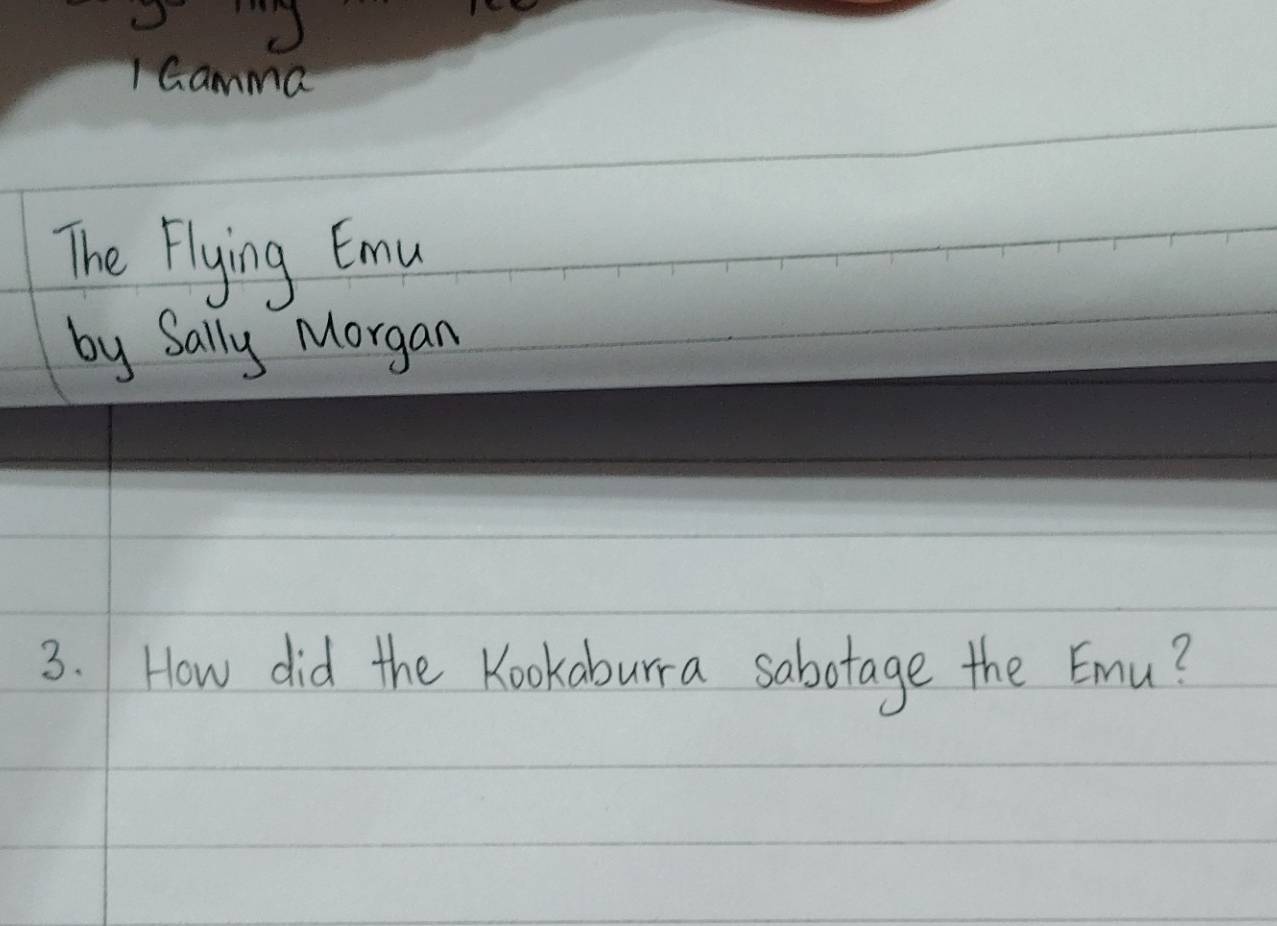 1 Gamma
The Flying Emu
by Sally Morgan
3. How did the Kookaburra sabotage the Emu?